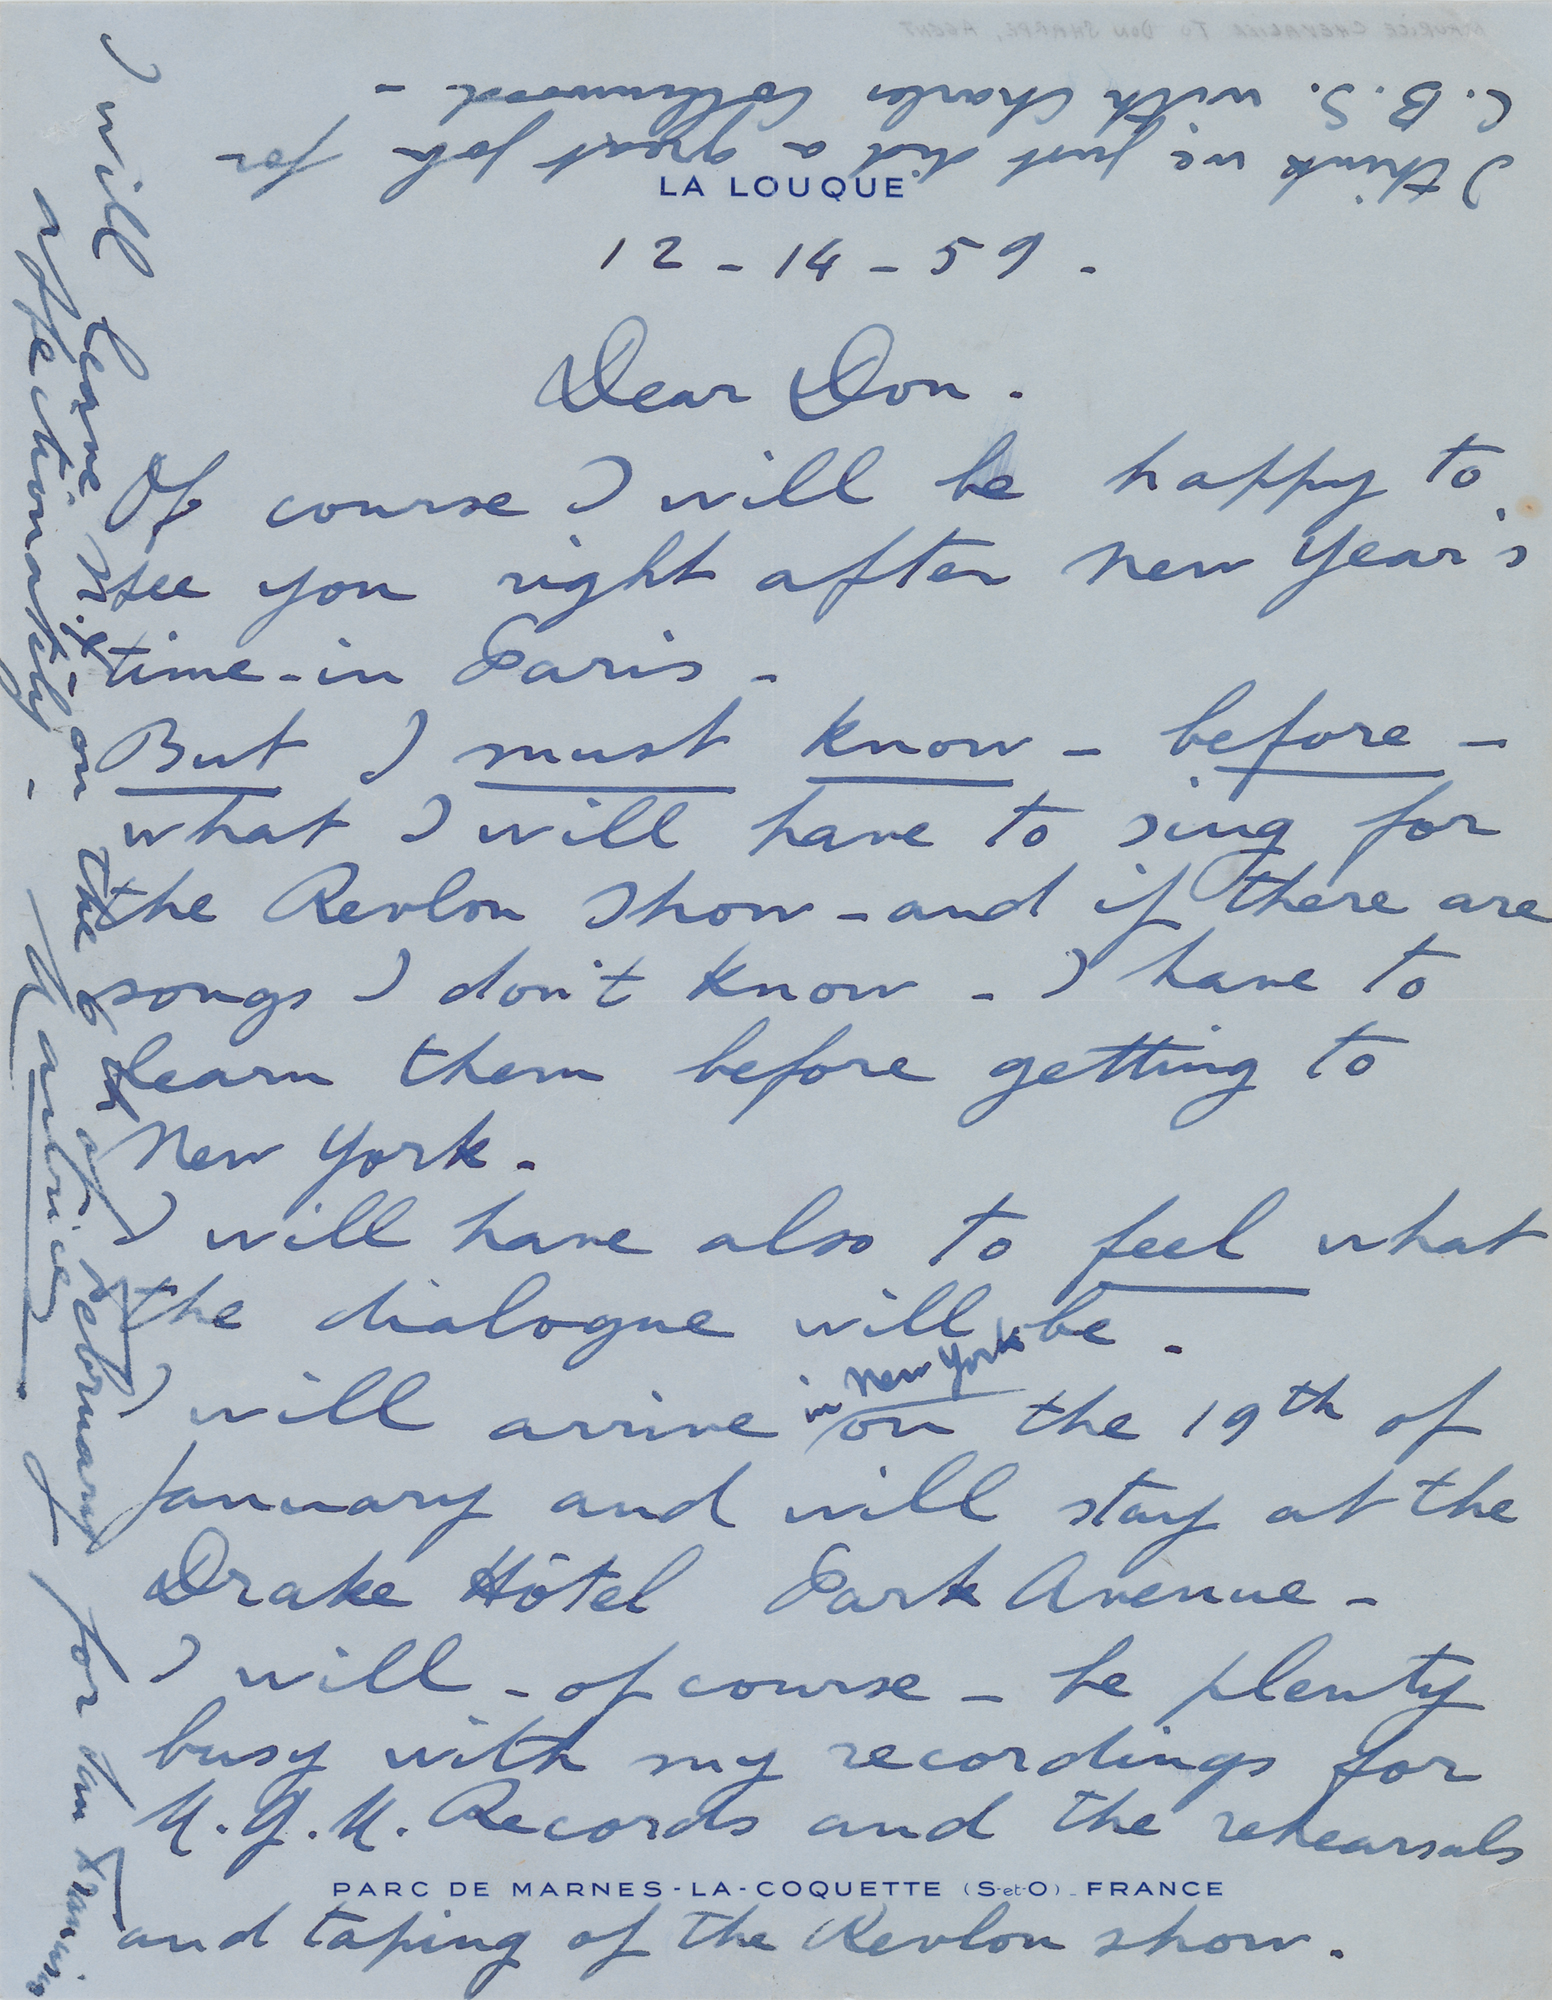 LA LOUQUE
12-14-59.
Dear Don.
Of course I will be happy to
see you right after New Year's
time-in Paris -
But I must know - before -
what I will have to sing for
the Revlon Show - and if there are
songs I don't know - I have to
learn them before getting to
New York.
I will have also to feel what
the dialogue will be.
I will arrive in New York on the 19th of
January and will stay at the
Drake Hôtel Park Avenue -
I will - of course - be plenty
busy with my recordings for
M.G.M. Records and the rehearsals
PARC DE MARNES-LA-COQUETTE (S-et-O) - FRANCE
and taping of the Revlon show.
I will leave N.Y. - on the 6th of February for San Francisco
affectionately -
Maurice
I think we just did a great job for -
C.B.S. with Charles Collinwood -
MAURICE CHEVALIER TO DON SHARPE, AGENT